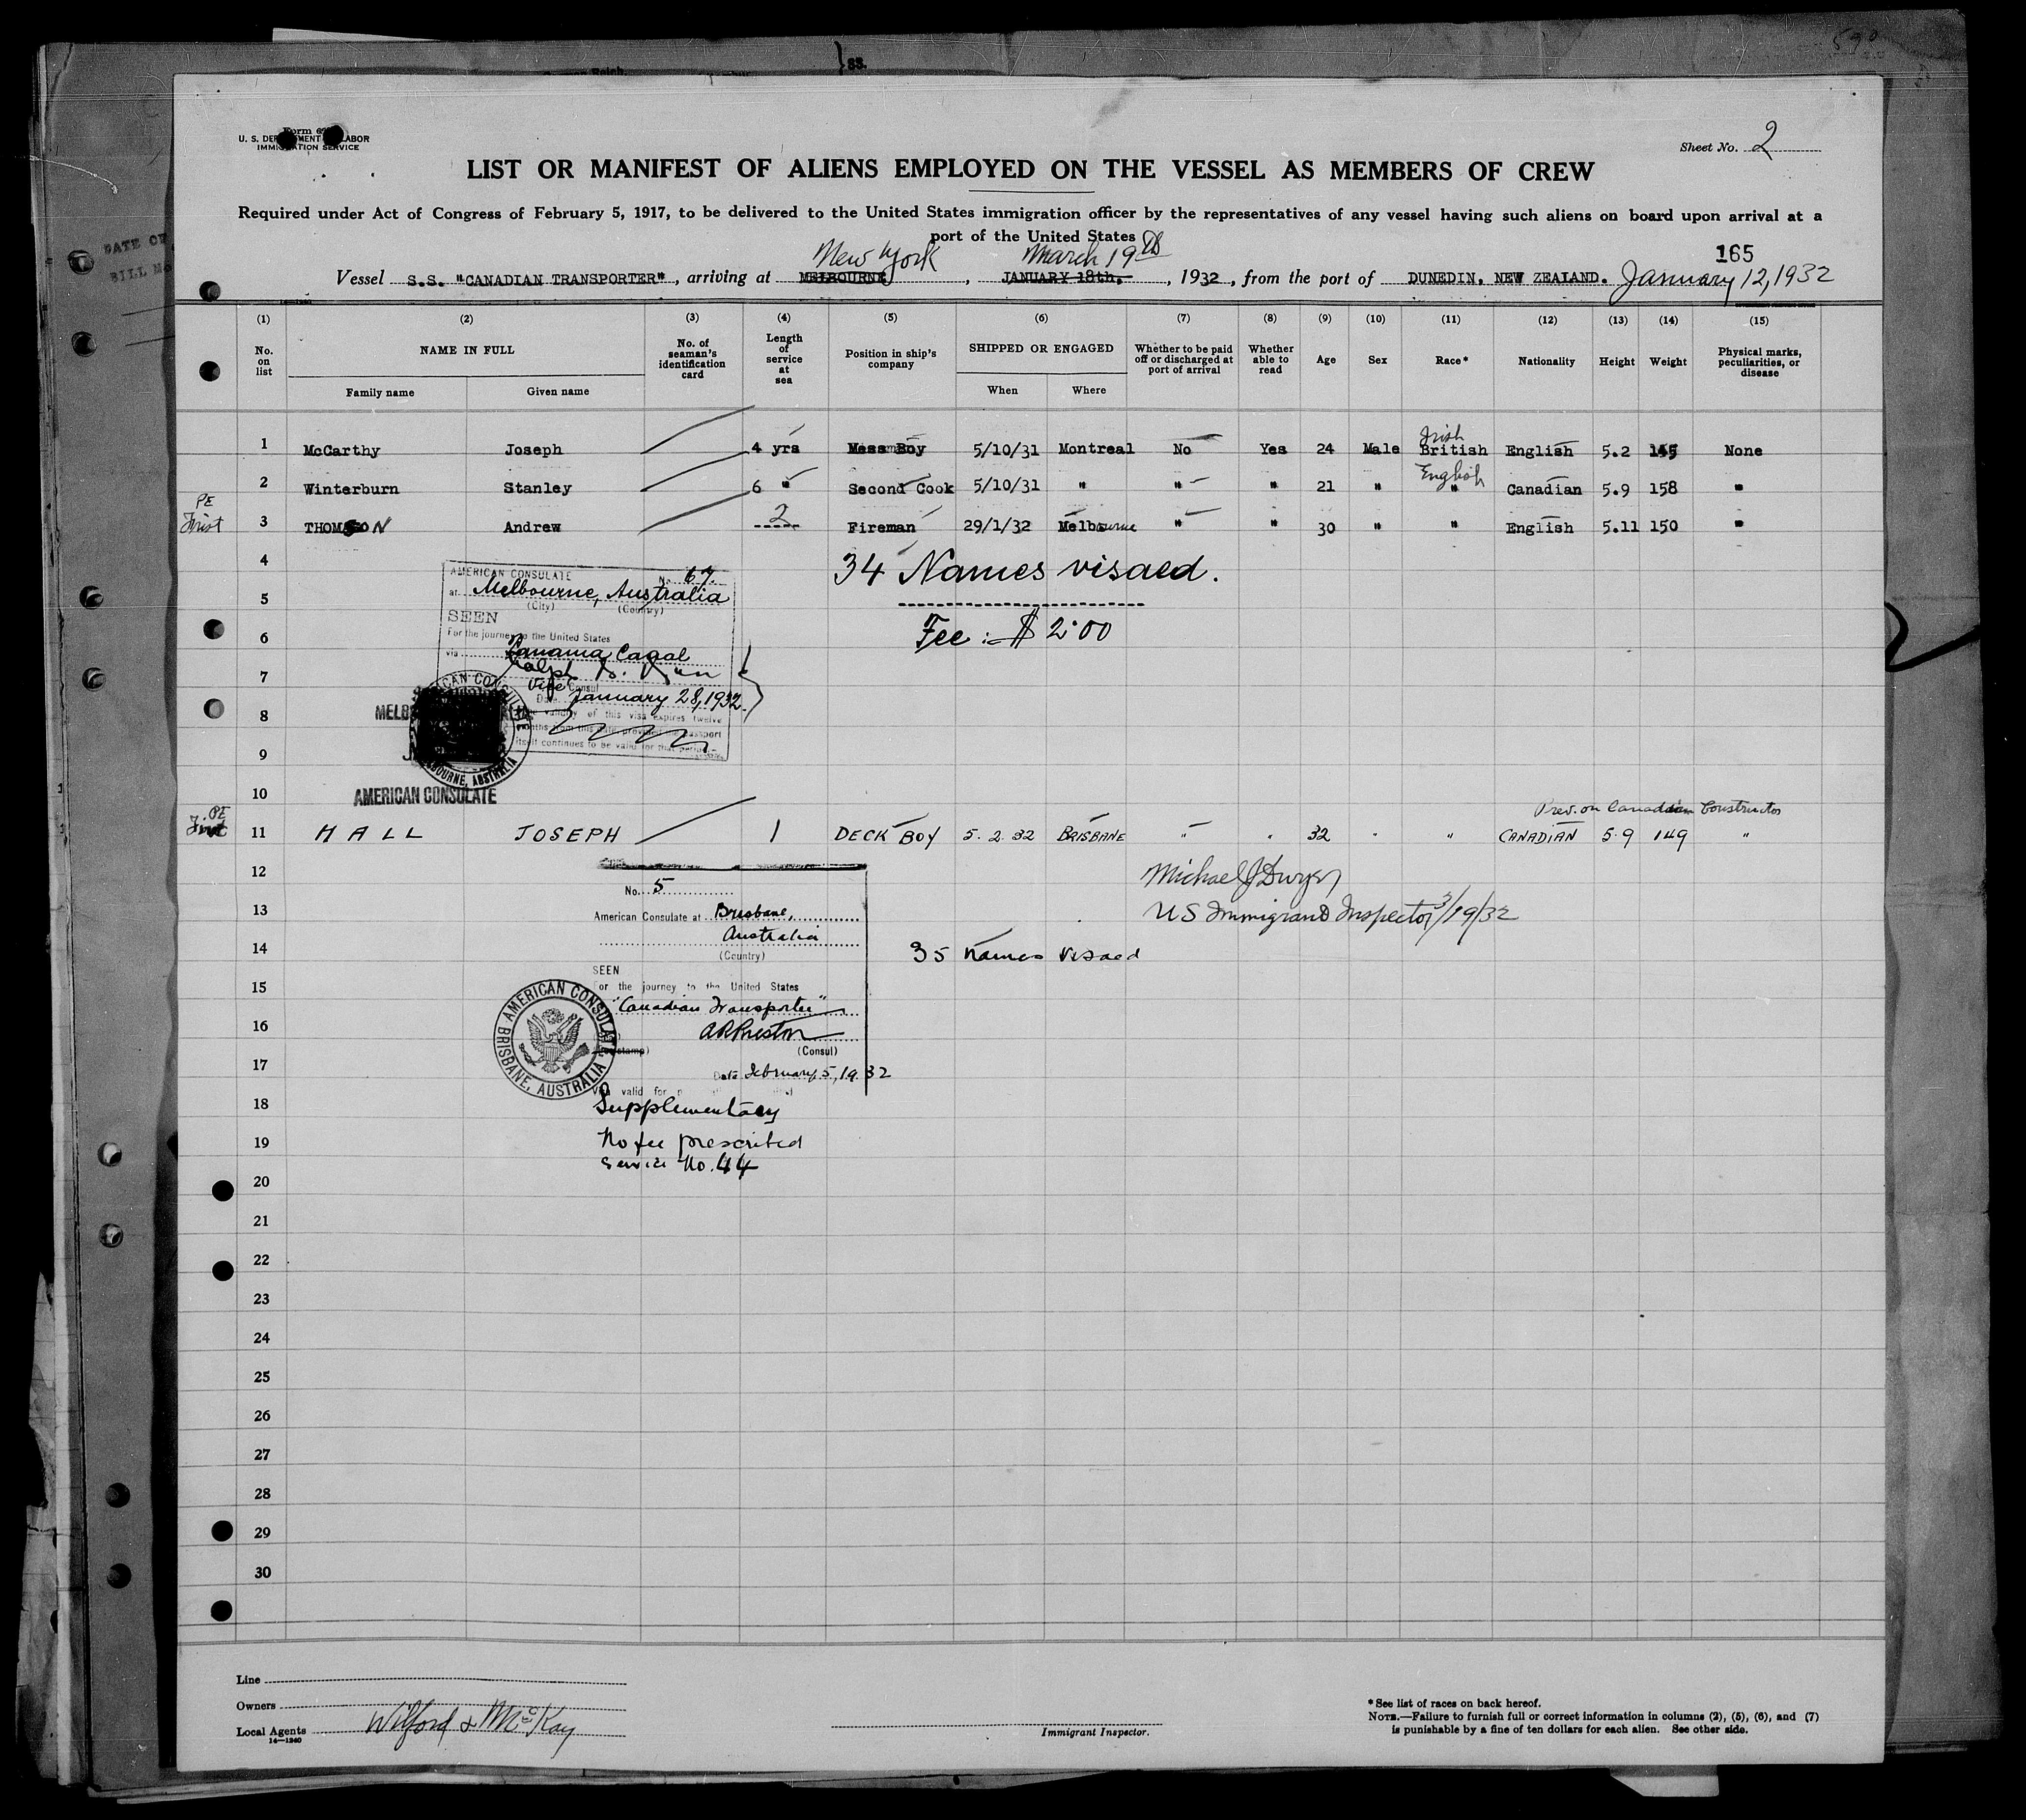 }ss.
590
DATE OF
BILL No
U. S. DEPARTMENT OF LABOR
IMMIGRATION SERVICE
Sheet No. 2
LIST OR MANIFEST OF ALIENS EMPLOYED ON THE VESSEL AS MEMBERS OF CREW
Required under Act of Congress of February 5, 1917, to be delivered to the United States immigration officer by the representatives of any vessel having such aliens on board upon arrival at a
port of the United States
165
New York March 19th
Vessel S.S. "CANADIAN TRANSPORTER", arriving at MELBOURNE, JANUARY 18th., 1932, from the port of DUNEDIN, NEW ZEALAND. January 12, 1932
(1) (2) (3) (4) (5) (6) (7) (8) (9) (10) (11) (12) (13) (14) (15)
No. on list NAME IN FULL No. of seaman's identification card Length of service at sea Position in ship's company SHIPPED OR ENGAGED Whether to be paid off or discharged at port of arrival Whether able to read Age Sex Race* Nationality Height Weight Physical marks, peculiarities, or disease
Family name Given name When Where
Irish
1 McCarthy Joseph 4 yrs Mess Boy 5/10/31 Montreal No Yes 24 Male British English 5.2 145 None
English
2 Winterburn Stanley 6 " Second Cook 5/10/31 " " " 21 " " Canadian 5.9 158 "
PE
First 3 THOMSON Andrew 2 Fireman 29/1/32 Melbourne " " 30 " " English 5.11 150 "
4 34 Names visaed.
AMERICAN CONSULATE No. 67
at Melbourne, Australia
5
(City) (Country)
SEEN
6 Fee :- $ 2.00
For the journey to the United States
via Panama Canal
7
Vice Consul
Date January 28, 1932
8
The validity of this visa expires twelve
months from this date provided the passport
itself continues to be valid for that period.
9
MELBOURNE, AUSTRALIA
10
AMERICAN CONSULATE
Prev. on Canadian Constructor
PE
First 11 HALL JOSEPH 1 DECK BOY 5.2.32 BRISBANE " " 32 " " CANADIAN 5.9 149 "
12 Michael J Dwyer
No. 5
13 US Immigrant Inspector 3/19/32
American Consulate at Brisbane,
Australia
14 35 names visaed
(Country)
SEEN
15
For the journey to the United States
"Canadian Transporter"
16
(Consul)
AMERICAN CONSULATE BRISBANE, AUSTRALIA
17
Date February 5, 1932
valid for
18 Supplementary
19 No fee prescribed
Service No. 44
20
21
22
23
24
25
26
27
28
29
30
Line
Owners
Local Agents Wilford & McKay
14—1240
Immigrant Inspector.
* See list of races on back hereof.
NOTE.—Failure to furnish full or correct information in columns (2), (5), (6), and (7)
is punishable by a fine of ten dollars for each alien. See other side.